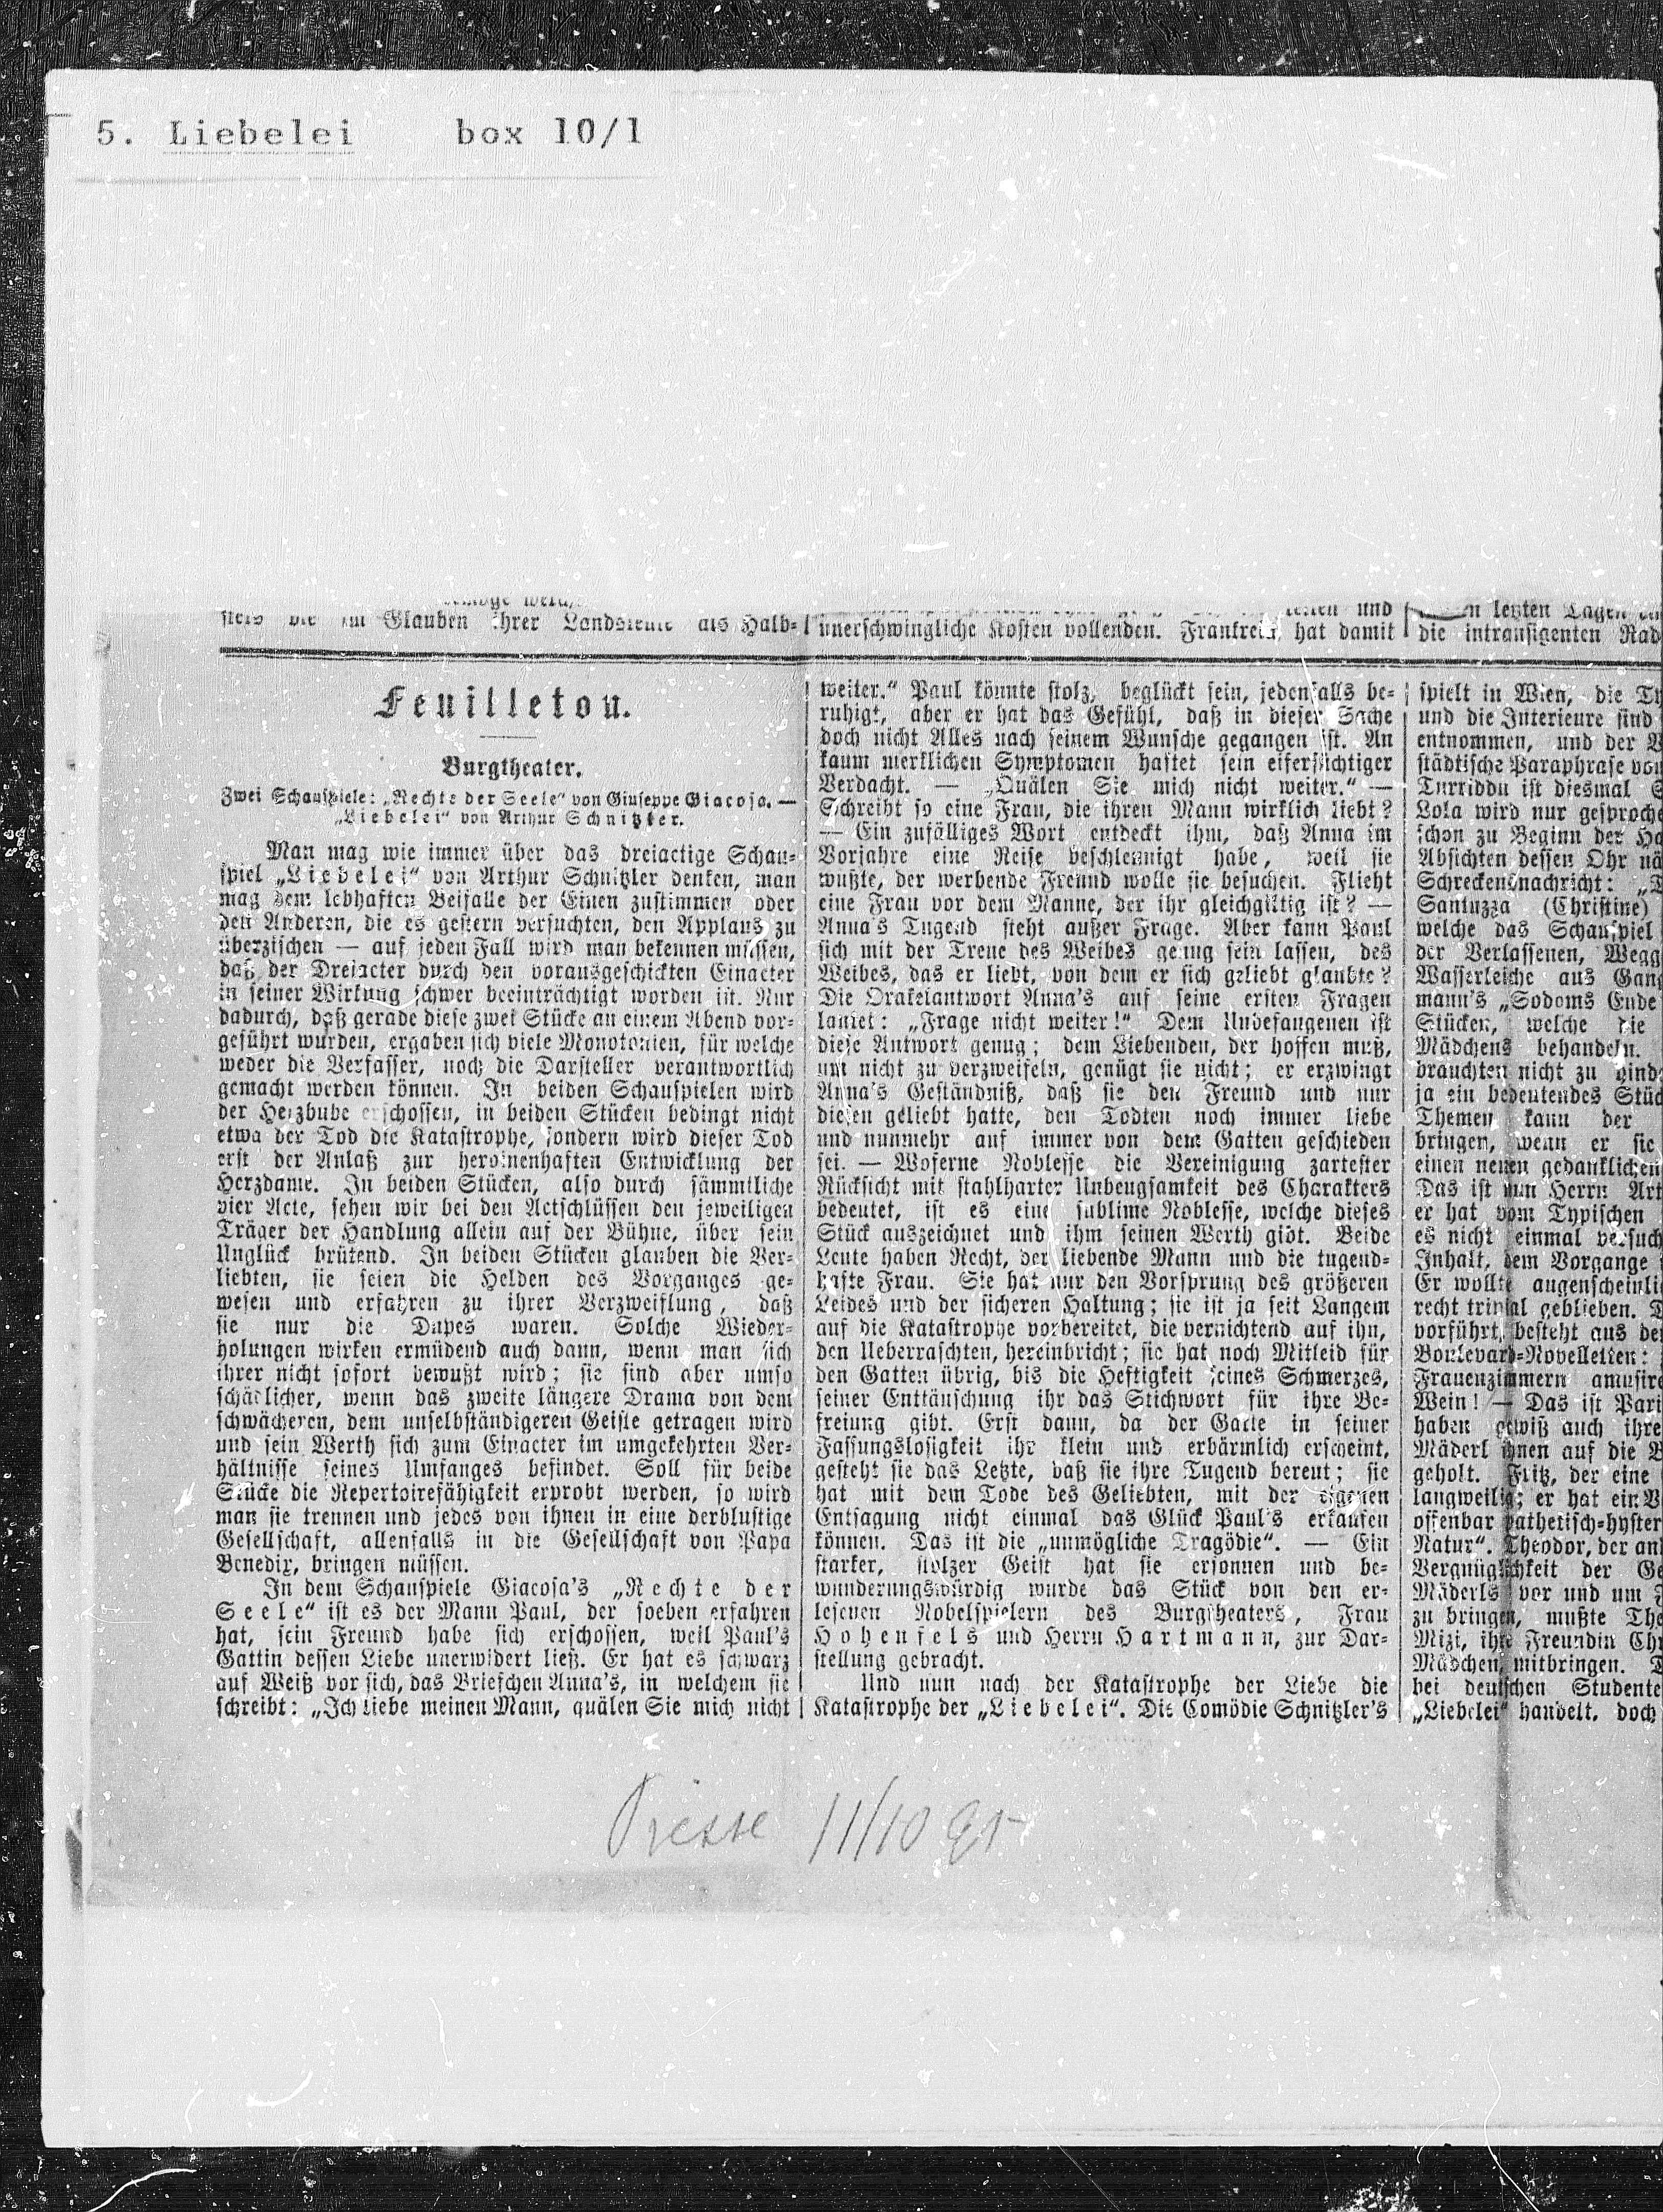 5. Liebelei box 10/1
Glauben ihrer Landsleute als Halb-
Feuilleton.
Burgtheater.
Zwei Schauspiele: „Rechte der Seele“ von Giuseppe Giacosa. —
„Liebelei“ von Arthur Schnitzler.
Man mag wie immer über das dreiactige Schau-
spiel „Liebelei“ von Arthur Schnitzler denken, man
mag dem lebhaften Beifalle der Einen zustimmen oder
den Anderen, die es gestern versuchten, den Applaus zu
überzischen — auf jeden Fall wird man bekennen müssen,
daß der Dreiacter durch den vorausgeschickten Einacter
in seiner Wirkung schwer beeinträchtigt worden ist. Nur
dadurch, daß gerade diese zwei Stücke an einem Abend vor-
geführt wurden, ergaben sich viele Monotonien, für welche
weder die Verfasser, noch die Darsteller verantwortlich
gemacht werden können. In beiden Schauspielen wird
der Herzbube erschossen, in beiden Stücken bedingt nicht
etwa der Tod die Katastrophe, sondern wird dieser Tod
erst der Anlaß zur heroinenhaften Entwicklung der
Herzdame. In beiden Stücken, also durch sämmtliche
vier Acte, sehen wir bei den Actschlüssen den jeweiligen
Träger der Handlung allein auf der Bühne, über sein
Unglück brütend. In beiden Stücken glauben die Ver-
liebten, sie seien die Helden des Vorganges ge-
wesen und erfahren zu ihrer Verzweiflung, daß
sie nur die Dupes waren. Solche Wieder-
holungen wirken ermüdend auch dann, wenn man sich
ihrer nicht sofort bewußt wird; sie sind aber umso
schädlicher, wenn das zweite längere Drama von dem
schwächeren, dem unselbständigeren Geiste getragen wird
und sein Werth sich zum Einacter im umgekehrten Ver-
hältnisse seines Umfanges befindet. Soll für beide
Stücke die Repertoirefähigkeit erprobt werden, so wird
man sie trennen und jedes von ihnen in eine derblustige
Gesellschaft, allenfalls in die Gesellschaft von Papa
Benedix, bringen müssen.
In dem Schauspiele Giacosa's „Rechte der
Seele“ ist es der Mann Paul, der soeben erfahren
hat, sein Freund habe sich erschossen, weil Paul's
Gattin dessen Liebe unerwidert ließ. Er hat es schwarz
auf Weiß vor sich, das Briefchen Anna's, in welchem sie
schreibt: „Ich liebe meinen Mann, quälen Sie mich nicht
und
unerschwingliche Kosten vollenden. Frankreich hat damit
weiter.“ Paul könnte stolz, beglückt sein, jedenfalls be-
ruhigt, aber er hat das Gefühl, daß in dieser Sache
doch nicht Alles nach seinem Wunsche gegangen ist. An
kaum merklichen Symptomen haftet sein eifersüchtiger
Verdacht. — „Quälen Sie mich nicht weiter.“ —
Schreibt so eine Frau, die ihren Mann wirklich liebt?
— Ein zufälliges Wort entdeckt ihm, daß Anna im
Vorjahre eine Reise beschleunigt habe, weil sie
wußte, der werbende Freund wolle sie besuchen. Flieht
eine Frau vor dem Manne, der ihr gleichgiltig ist? —
Anna's Tugend steht außer Frage. Aber kann Paul
sich mit der Treue des Weibes genug sein lassen, des
Weibes, das er liebt, von dem er sich geliebt glaubte?
Die Orakelantwort Anna's auf seine ersten Fragen
lautet: „Frage nicht weiter!“ Dem Unbefangenen ist
diese Antwort genug; dem Liebenden, der hoffen muß,
um nicht zu verzweifeln, genügt sie nicht; er erzwingt
Anna's Geständniß, daß sie den Freund und nur
diesen geliebt hatte, den Todten noch immer liebe
und nunmehr auf immer von dem Gatten geschieden
sei. — Woferne Noblesse die Vereinigung zartester
Rücksicht mit stahlharter Unbeugsamkeit des Charakters
bedeutet, ist es eine sublime Noblesse, welche dieses
Stück auszeichnet und ihm seinen Werth gibt. Beide
Leute haben Recht, der liebende Mann und die tugend-
hafte Frau. Sie hat nur den Vorsprung des größeren
Leides und der sicheren Haltung; sie ist ja seit Langem
auf die Katastrophe vorbereitet, die vernichtend auf ihn,
den Ueberraschten, hereinbricht; sie hat noch Mitleid für
den Gatten übrig, bis die Heftigkeit seines Schmerzes,
seiner Enttäuschung ihr das Stichwort für ihre Be-
freiung gibt. Erst dann, da der Gatte in seiner
Fassungslosigkeit ihr klein und erbärmlich erscheint,
gesteht sie das Letzte, daß sie ihre Tugend bereut; sie
hat mit dem Tode des Geliebten, mit der eigenen
Entsagung nicht einmal das Glück Paul's erkaufen
können. Das ist die „unmögliche Tragödie“. — Ein
starker, stolzer Geist hat sie ersonnen und be-
wunderungswürdig wurde das Stück von den er-
lesenen Nobelspielern des Burgtheaters, Frau
Hohenfels und Herrn Hartmann, zur Dar-
stellung gebracht.
Und nun nach der Katastrophe der Liebe die
Katastrophe der „Liebelei“. Die Comödie Schnitzler's
letzten Tagen
die intransigenten Rad
spielt in Wien, die Ty
und die Interieure sind
entnommen, und der V
städtische Paraphrase von
Turriddu ist diesmal
Lola wird nur gesproche
schon zu Beginn der Ha
Absichten dessen Ohr nä
Schreckensnachricht: „T
Santuzza (Christine)
welche das Schauspiel
der Verlassenen, Wegg
Wasserleiche aus Gang
mann's „Sodoms Ende
Stücken, welche die
Mädchens behandeln.
brauchten nicht zu hind
ja ein bedeutendes Stüc
Themen kann der
bringen, wenn er sie
einen neuen gedanklichen
Das ist nun Herrn Art
er hat vom Typischen
es nicht einmal versuch
Inhalt, dem Vorgange
Er wollte augenscheinlic
recht trivial geblieben. D
vorführt, besteht aus de
Boulevard-Novelletten:
Frauenzimmern amusire
Wein! — Das ist Pari
haben gewiß auch ihre
Mäderl ihnen auf die B
geholt. Fritz, der eine
langweilig; er hat ein V
offenbar pathetisch-hyster
Natur“. Theodor, der an
Vergnüglichkeit der Ge
Mäderls vor und um F
zu bringen, mußte The
Mizi, ihre Freundin Chr
Mädchen, mitbringen. D
bei deutschen Studente
„Liebelei“ handelt, doch
Presse 11/10 95